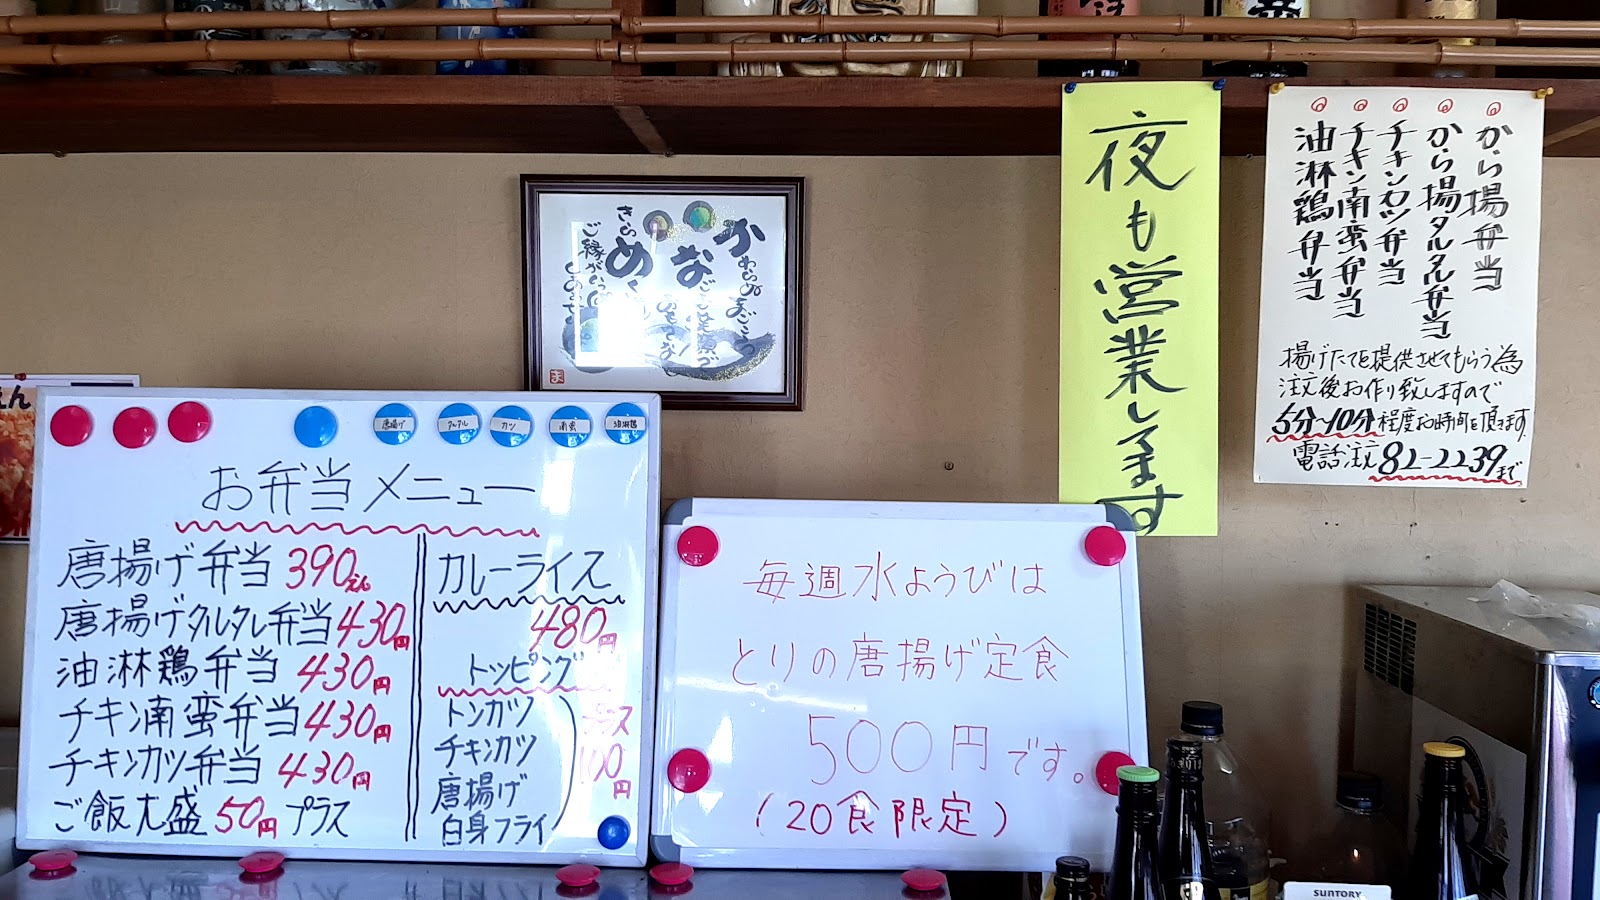 お弁当メニュー
唐揚げ弁当 390えん
唐揚げタルタル弁当 430円
油淋鶏弁当 430円
チキン南蛮弁当 430円
チキンカツ弁当 430円
ご飯大盛 50円 プラス
カレーライス
480円
トッピング
トンカツ
チキンカツ
唐揚げ
白身フライ
プラス
100
円
唐揚げ
タルタル
カツ
南蛮
油淋鶏
毎週水ようびは
とりの唐揚げ定食
500円です。
(20食限定)
かわらぬまごころ
な
めぐ
きらめく
ご縁が
夜も営業します
から揚弁当
から揚タルタル弁当
チキンカツ弁当
チキン南蛮弁当
油淋鶏弁当
揚げたてを提供させてもらう為
注文後お作り致しますので
5分~10分程度お時間を頂きます
電話注文82-2239まで
SUNTORY